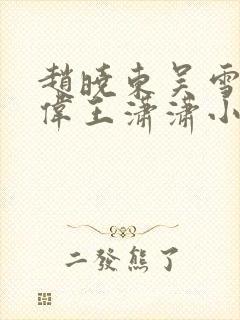 趙曉東吴雪
偉王瀟瀟小
二發熊了